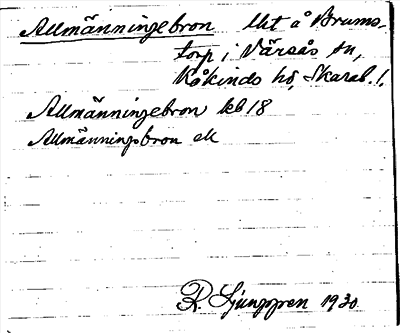 Allmänningebron Ukt å Brums-
torp i Värsås sn,
Kåkinds hd, Skarab. l.
Allmänningebron kb 18
Allmänningsbron ek
R. Ljunggren 1930